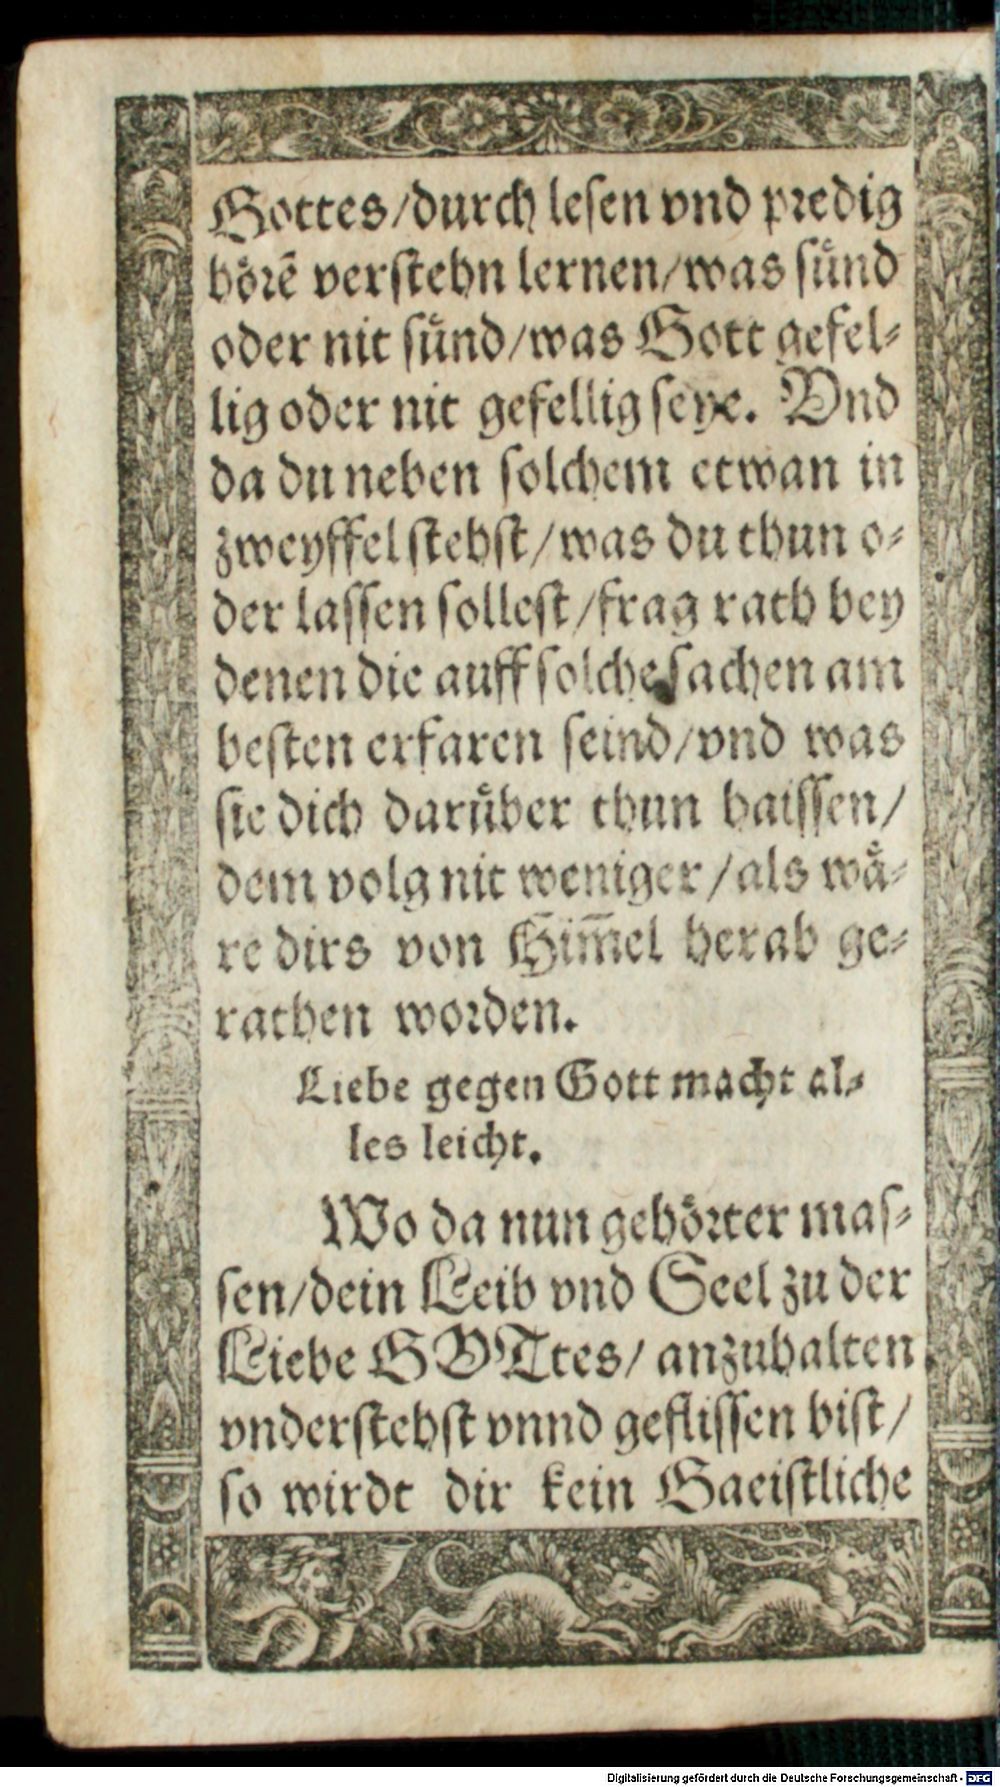 Gottes/durch lesen vnd predig
hörẽ verstehn lernen/was sünd
oder nit sünd/was Gott gefel-
lig oder nit gefellig seye. Vnd
da du neben solchem etwan in
zweyffel stehst/was du thun o-
der lassen sollest/frag rath bey
denen die auff solche sachen am
besten erfaren seind/vnd was
sie dich darüber thun haissen/
dem volg nit weniger/als wä-
re dirs von Him̃el herab ge-
rathen worden.
Liebe gegen Gott macht al-
les leicht.
Wo da nun gehörter mas-
sen/dein Leib vnd Seel zu der
Liebe GOTtes/ anzuhalten
vnderstehst vnnd geflissen bist/
so wirdt dir kein Gaeistliche
Digitalisierung gefördert durch die Deutsche Forschungsgemeinschaft - DFG